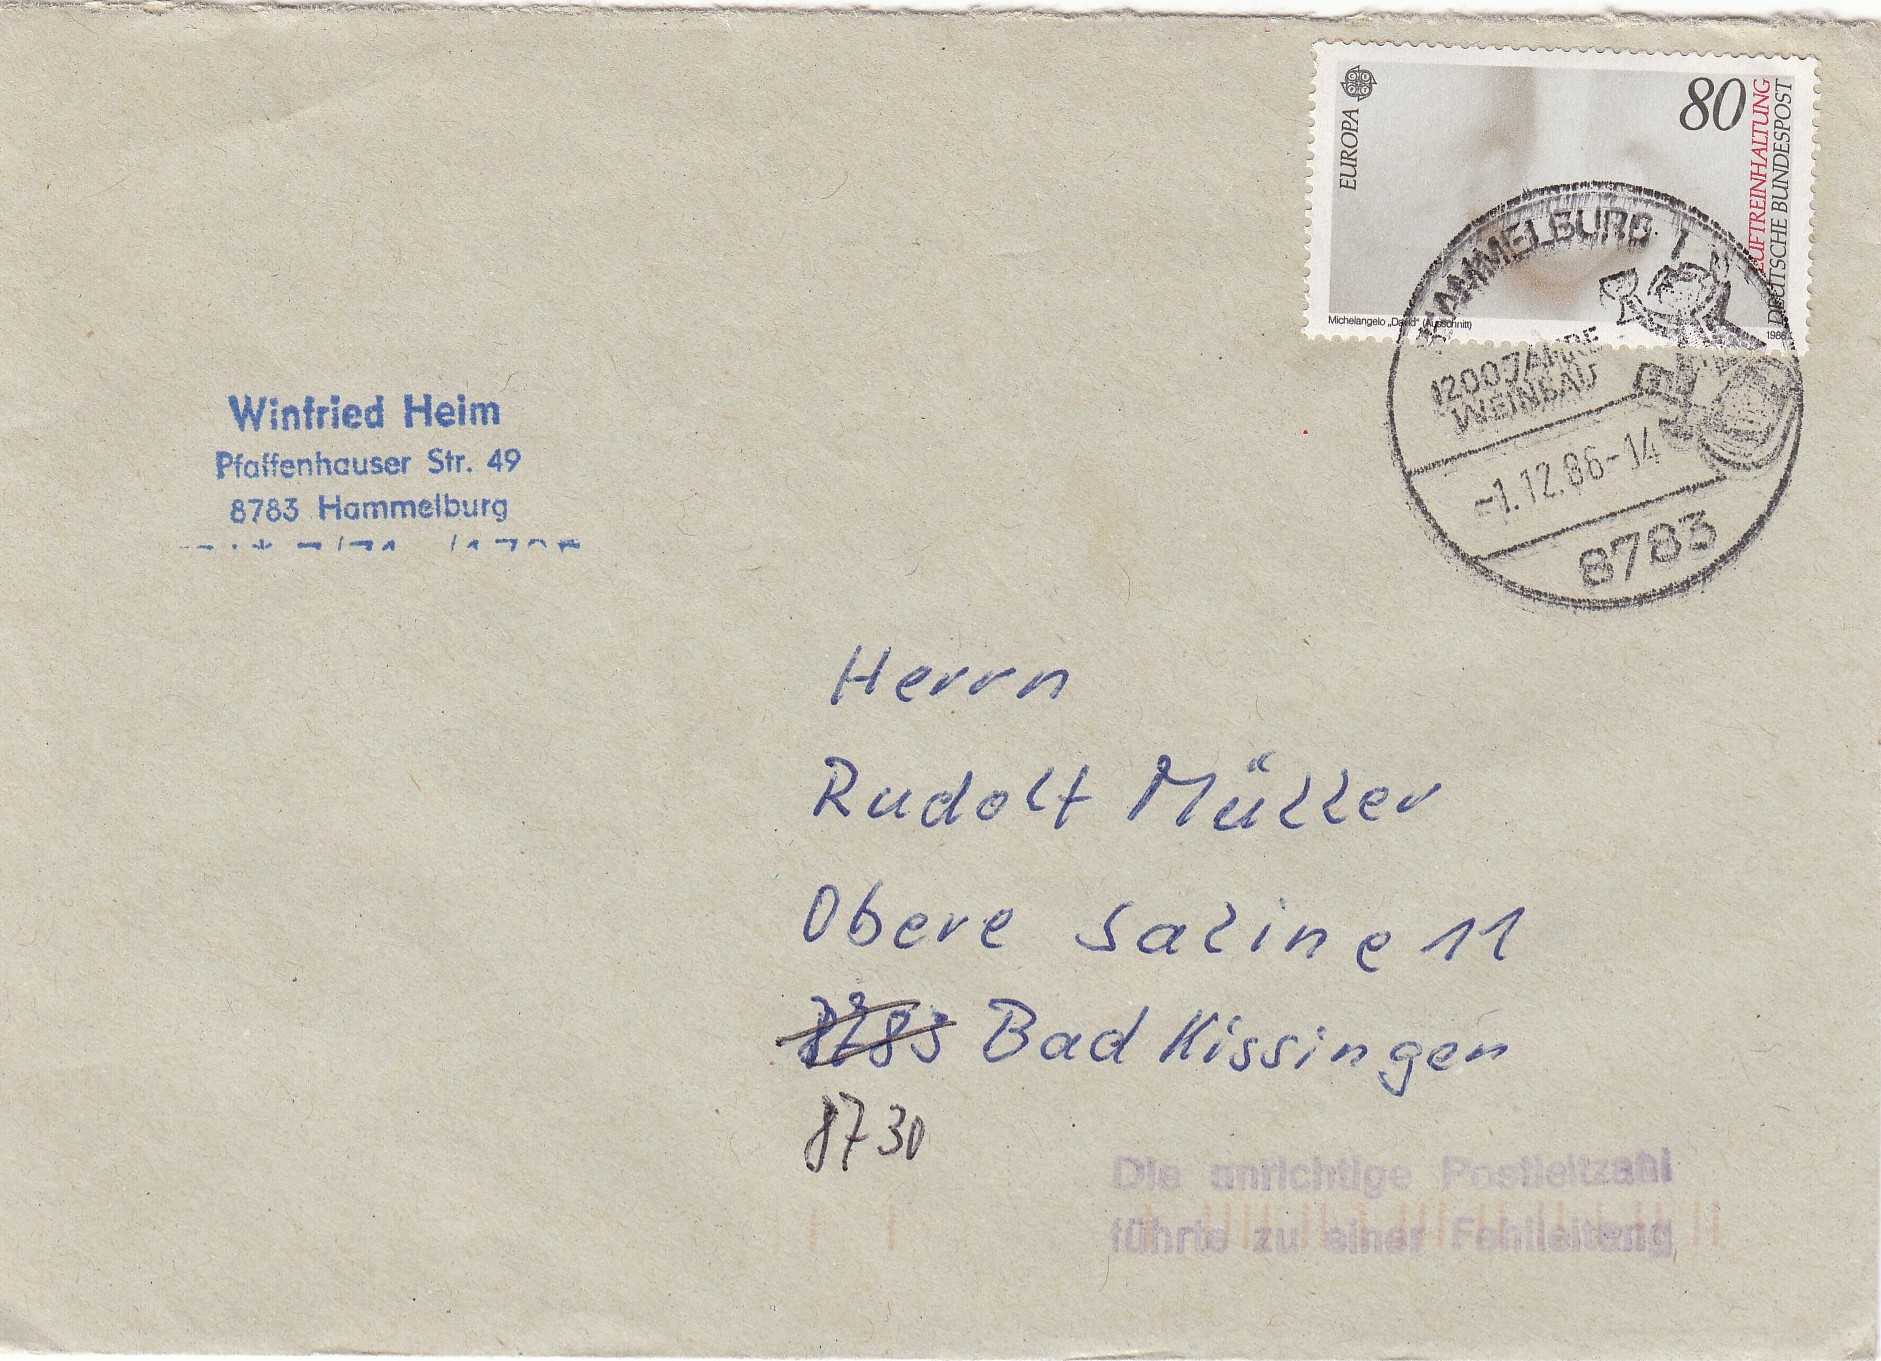 EUROPA
80
LUFTREINHALTUNG
DEUTSCHE BUNDESPOST
Michelangelo „David“ (Ausschnitt)
1986
HAMMELBURG 1
1200 JAHRE
WEINBAU
-1.12.86-14
8783
Winfried Heim
Pfaffenhauser Str. 49
8783 Hammelburg
Herrn
Rudolf Müller
Obere Saline 11
8783 Bad Kissingen
8730
Die unrichtige Postleitzahl
führte zu einer Fehlleitung